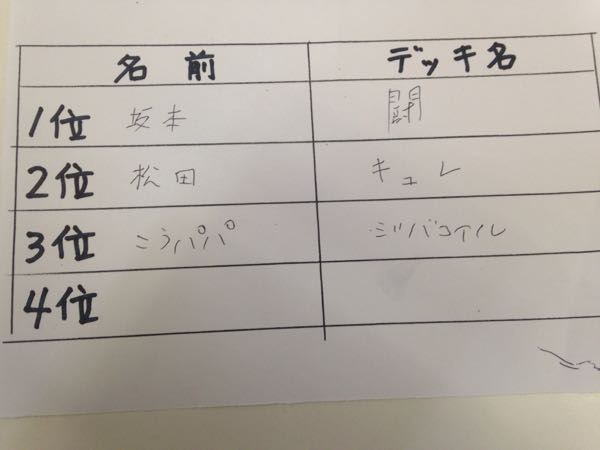 名前 デッキ名
1位 坂本 闘
2位 松田 キュレ
3位 こうパパ ジバコイル
4位